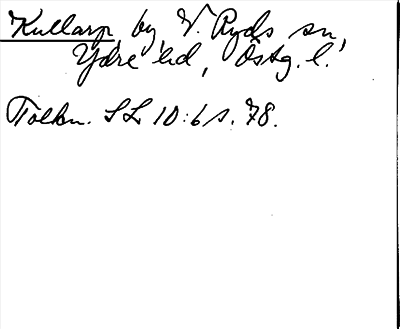 Kullarp, by, V. Ryds sn,
Ydre hd, Östg. l.
Tolkn. SL 10:6 s. 78.